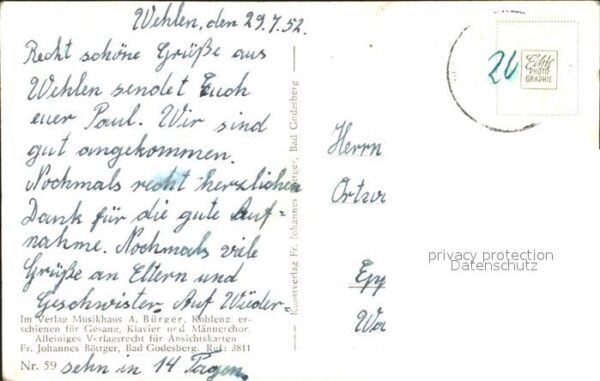 Wehlen, den 29.7.52.
Recht schöne Grüße aus
Wehlen sendet Euch
euer Paul. Wir sind
gut angekommen.
Nochmals recht herzlichen
Dank für die gute Auf-
nahme. Nochmals viele
Grüße an Eltern und
Geschwister. Auf Wieder-
Im Verlag Musikhaus A. Bürger, Koblenz, er-
schienen für Gesang, Klavier und Männerchor.
Alleiniges Verlagsrecht für Ansichtskarten
Fr. Johannes Böttger, Bad Godesberg. Ruf: 3811
Nr. 59
sehn in 14 Tagen.
Kunstverlag Fr. Johannes Böttger, Bad Godesberg
20
Echte
PHOTO
GRAPHIE
Herrn
Ortwi
privacy protection
Datenschutz
Epp